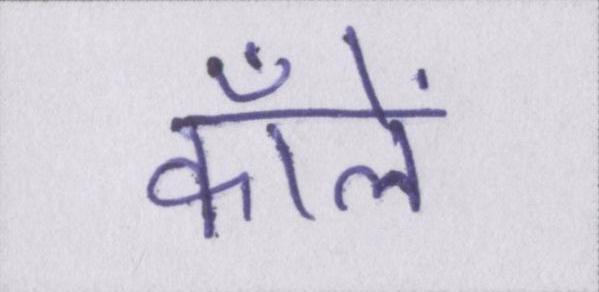 काँलें